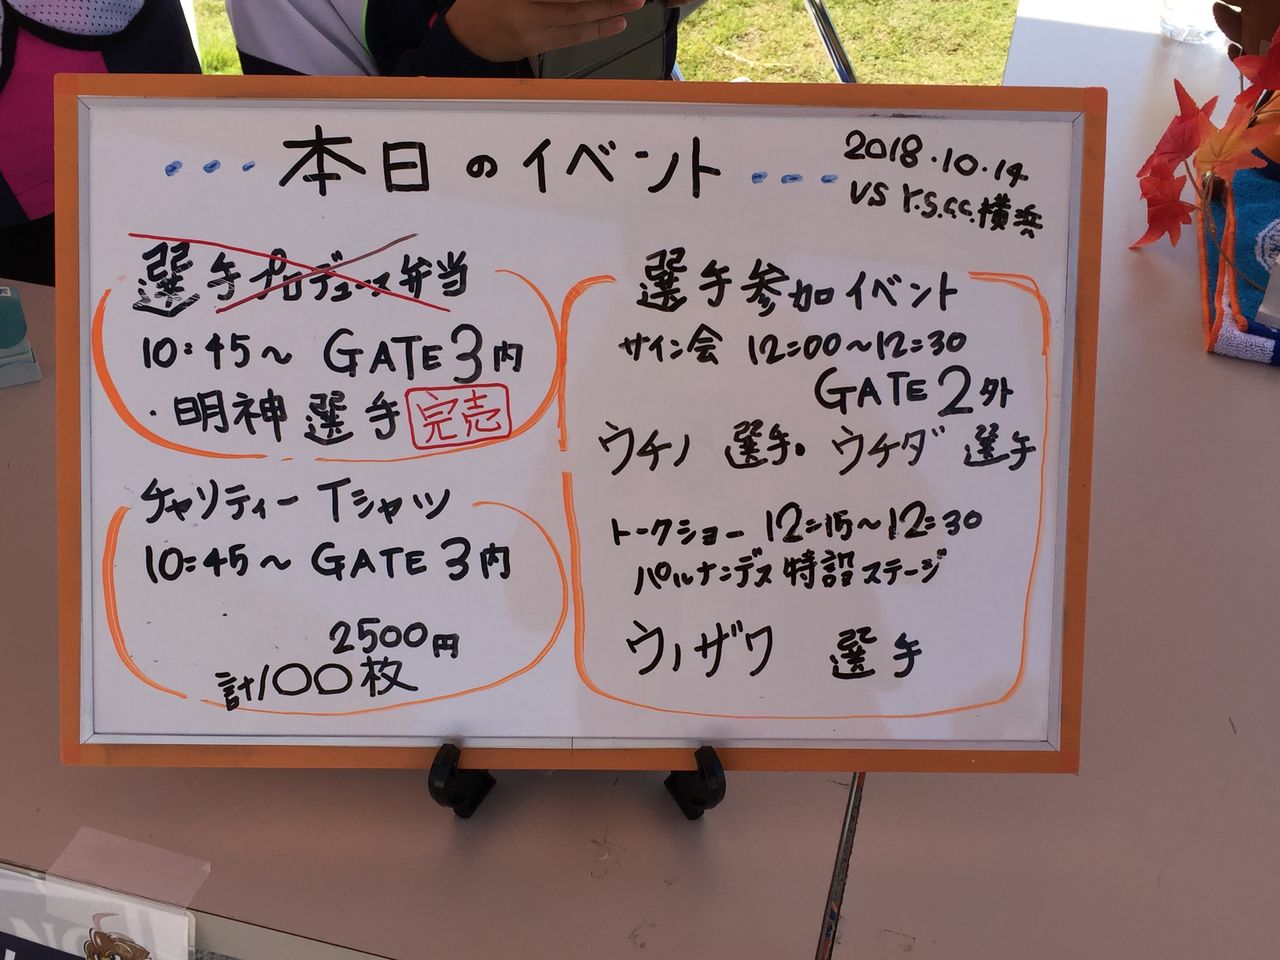 ・・・本日のイベント・・・
2018.10.14
VS Y.S.C.C.横浜
選手プロデュース弁当
10:45～ GATE 3内
・明神 選手 完売
チャリティー Tシャツ
10:45～ GATE 3内
2500円
計100枚
選手参加イベント
サイン会 12:00～12:30
GATE 2外
ウチノ 選手・ウチダ 選手
トークショー 12:15～12:30
パルナンデス 特設ステージ
ウノザワ 選手